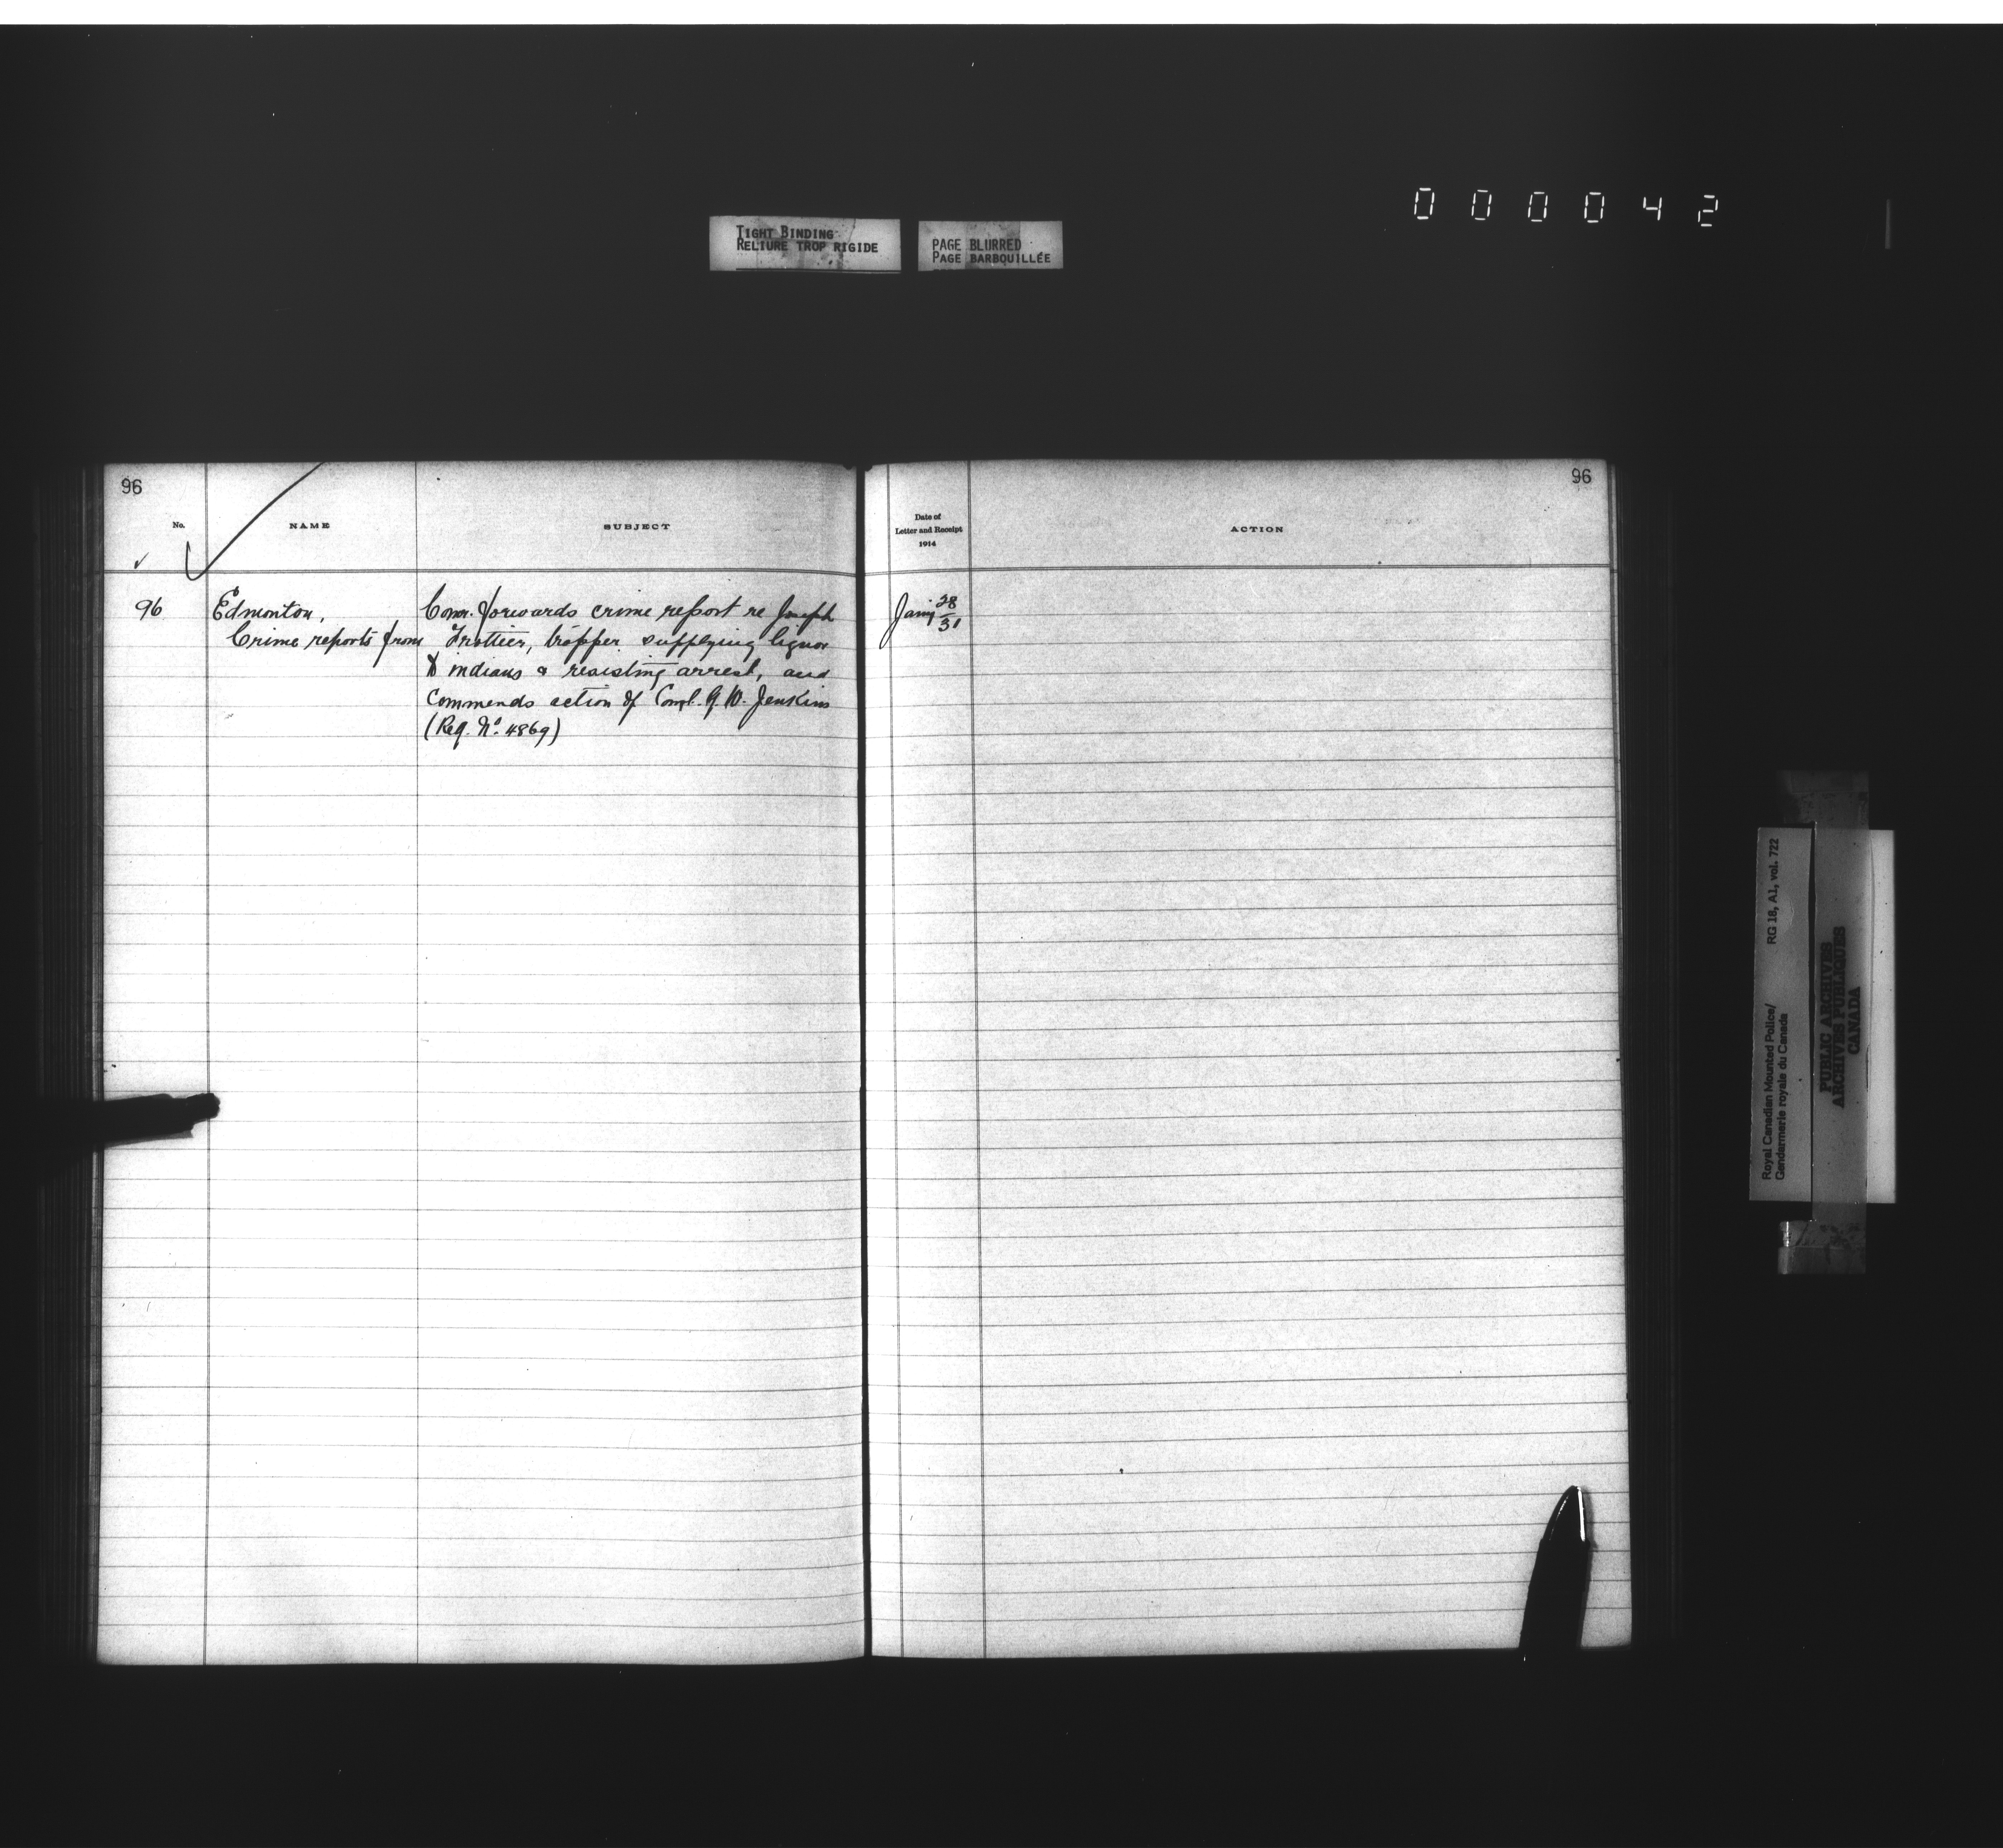 000042
TIGHT BINDING
RELIURE TROP RIGIDE
PAGE BLURRED
PAGE BARBOUILLÉE
96
No.
NAME
SUBJECT
96
Edmonton,
Crime reports from
Comr. forwards crime report re Joseph
Trottier, trapper supplying liquor
to indians & resisting arrest, and
commends action of Corpl. G. W. Jenkins
(Reg. No. 4869)
96
Date of
Letter and Receipt
1914
ACTION
Jany 28
31
Royal Canadian Mounted Police/ RG 18, A1, vol. 722
Gendarmerie royale du Canada
PUBLIC ARCHIVES
ARCHIVES PUBLIQUES
CANADA